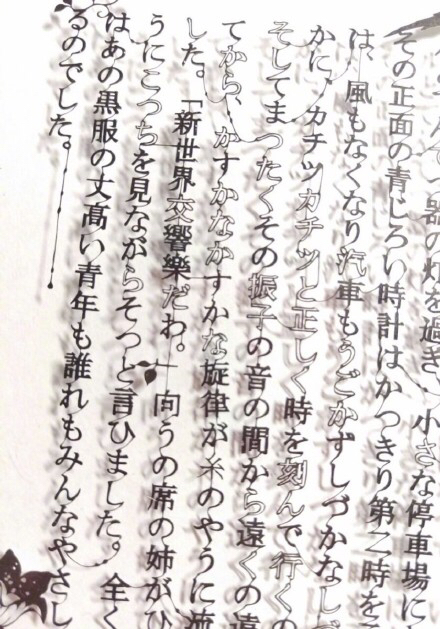 んてつ器の灯を過ぎ小さな停車場に
その正面の青じろい時計はかつきり第二時を
は、風もなくなり汽車もうごかずしづかなしづ
かに、カチツカチツと正しく時を刻んで行くの
そしてまつたくその振子の音の間から遠くの遠
てから、かすかなかすかな旋律が糸のやうに流
した。「新世界交響樂だわ。」向うの席の姉がひ
うにこつちを見ながらそつと言ひました。全く
はあの黒服の丈髙い青年も誰れもみんなやさし
るのでした。